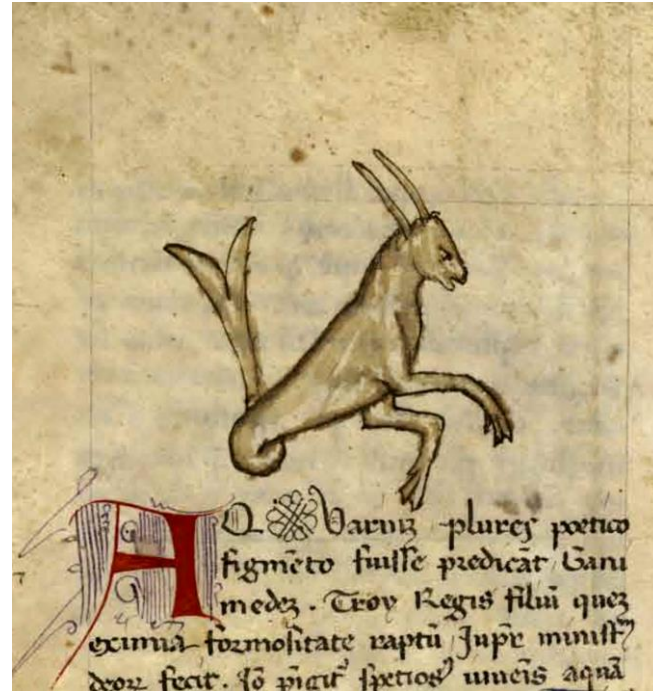 AQVariuz plures poetico
figmēto fuisse predicāt Gani
medez . Troy Regis filiū quez
eximia formositate raptū Jupr̄ minist
deoꝝ fecit . Iō pīgit᷑ spetios᷒ umeis aquā